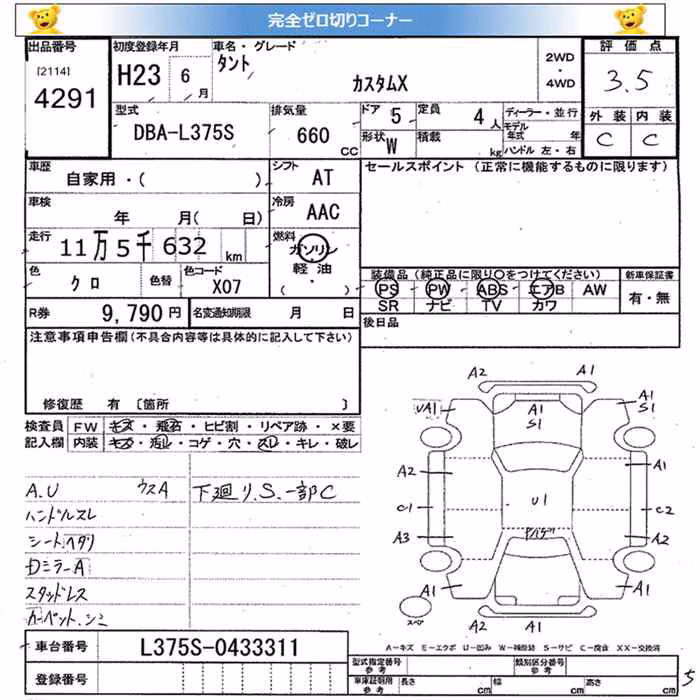 完全ゼロ切りコーナー
出品番号 初度登録年月 車名・グレード 2WD・4WD 評価点
[2114] 4291 H23 6月 タント カスタムX 3.5
型式 排気量 ドア 5 定員 4人 ディーラー・並行 外装 内装
DBA-L375S 660CC 形状 W 積載 kg モデル年式 年 C C
ハンドル 左・右
車歴 シフト セールスポイント (正常に機能するものに限ります)
自家用・( ) AT
車検 冷房
年 月( 日) AAC
走行 燃料
11万5千632km ガソリン 軽油 ( )
色 色替 色コード 装備品 (純正品に限り○をつけてください) 新車保証書
クロ X07 PS PW ABS エアB AW 有・無
SR ナビ TV カワ
R券 9,790円 名変通知期限 月 日 後日品
注意事項申告欄(不具合内容等は具体的に記入して下さい)
修復歴 有 〔箇所 〕
検査員 FW キズ・飛石・ヒビ割・リペア跡・×要
記入欄 内装 キズ・汚レ・コゲ・穴・スレ・キレ・破レ
A.U ウスA 下廻り.S.一部C
ハンドルスレ
シートヘタリ
Dミラ-A
スタッドレス
カーペットシミ
A2 A1
UA1 A1 S1 A1 S1
A2 A1
C1 U1 C2
A3 A2
A1 A1
スペア A2 A1
A-キズ E-エクボ U-凹み W-補修跡 S-サビ C-腐食 XX-交換済
車台番号 L375S-0433311
登録番号
型式指定番号 参考 類別区分番号 参考
車庫証明用 参考 長さ cm 幅 cm 高さ cm
5